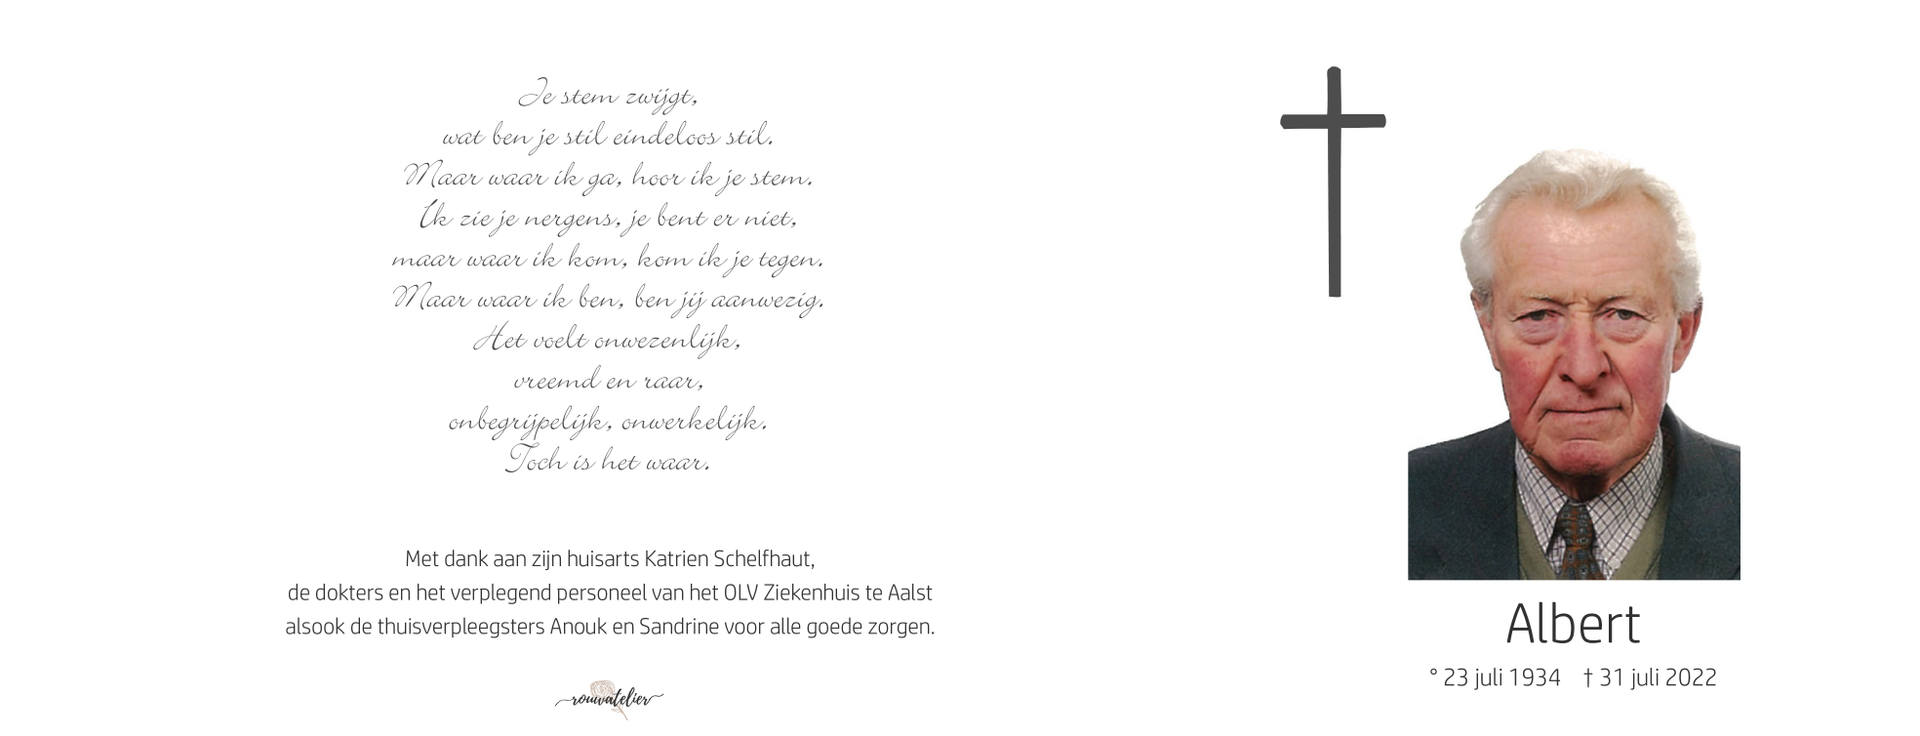 Je stem zwijgt,
wat ben je stil eindeloos stil.
Maar waar ik ga, hoor ik je stem.
Ik zie je nergens, je bent er niet,
maar waar ik kom, kom ik je tegen.
Maar waar ik ben, ben jij aanwezig.
Het voelt onwezenlijk,
vreemd en raar,
onbegrijpelijk, onwerkelijk.
Toch is het waar.
Met dank aan zijn huisarts Katrien Schelfhaut,
de dokters en het verplegend personeel van het OLV Ziekenhuis te Aalst
alsook de thuisverpleegsters Anouk en Sandrine voor alle goede zorgen.
rouwatelier
Albert
° 23 juli 1934 † 31 juli 2022